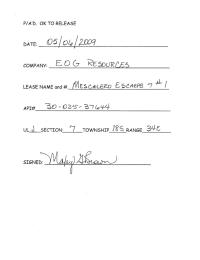 P/A'D. OK TO RELEASE
DATE: 05/06/2009
COMPANY: EOG RESOURCES
LEASE NAME and #. MESCALERO ESCARPE 7 #1
API# 30-025-37644
UL J SECTION 7 TOWNSHIP 18S RANGE 34E
SIGNED: